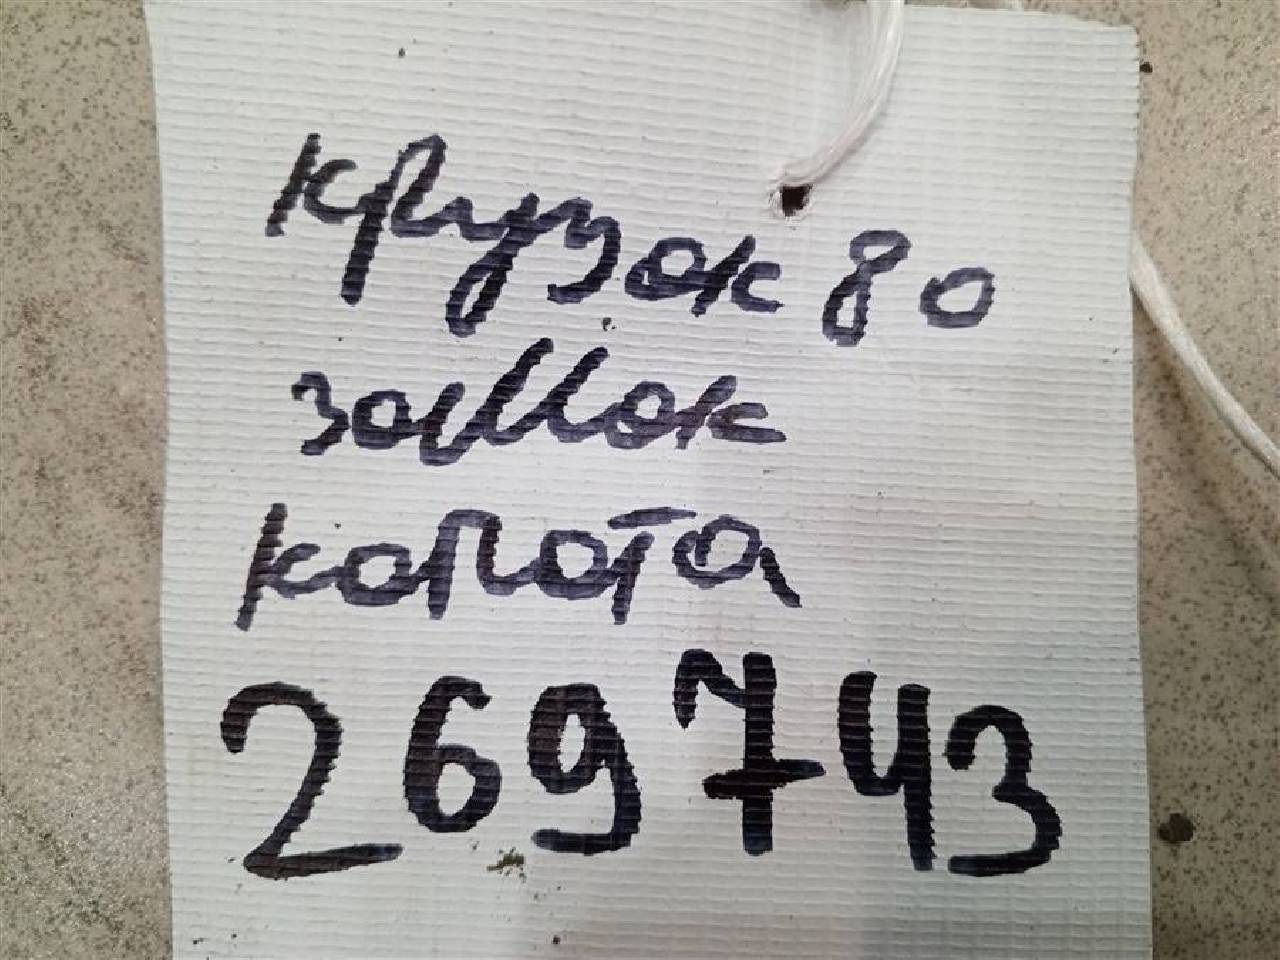 крузак 80
замок
капота
269743